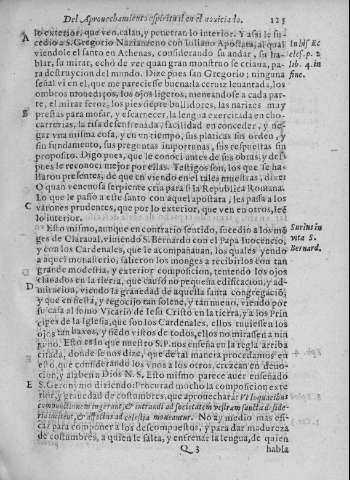 Del Aprouechamiento espiritual en el nouiciado. 123
A lo exterior, que ven, calan, y penetran lo interior. Y assi le su-
cedio a S. Gregorio Nazianzeno con Iuliano Apostata, al qual
viendole el santo en Athenas, considerando su andar, su ha-
blar, su mirar, echó de ver quan gran monstro se criaua, pa-
ra destruycion del mundo. Dize pues san Gregorio; ninguna
señal vi en el, que me pareciesse buena: la ceruiz leuantada, los
ombros monedijos, los ojos ligeros, meneandose a cada par-
te, el mirar feroz, los pies siepre bullidores, las narizes muy
B prestas para mofar, y escarnecer, la lengua exercitada en cho-
carrerias, la risa desenfrenada, facilidad en conceder, y ne-
gar vna misma cosa, y en vn tiempo, sus platicas sin orden, y
sin fundamento, sus preguntas importunas, sus respuestas sin
proposito. Digo pues, que le conoci antes de sus obras, y des-
pues le reconoci mejor por ellas. Testigos son, los que se ha-
llaron presentes, de que en viendo en el tales muestras, dixe:
O quan venenosa serpiente cria para si la Republica Romana.
Lo que le passo a este santo con aquel apostata, les passa a los
C varones prudentes, que por lo exterior, que ven en otros, leé
lo interior.
Esto mismo, aunque en contrario sentido, sucedio a los mō-
ges de Claraual, viniendo S. Bernardo con el Papa Inocencio,
y con los Cardenales, que le acompañauan, los quales yendo
a aquel monasterio, salieron los monges a recibirlos con tan
grande modestia, y exterior composicion, teniendo los ojos
clauados en la tierra, que causó no pequeña edificacion, y ad-
D miracion, viendo la grauedad de aquella santa congregació,
y que en fiesta, y regocijo tan solene, y tan nueuo, viendo por
su casa al sumo Vicario de Iesu Christo en la tierra, y a los Prin
cipes de la Iglesia, que son los Cardenales, ellos tuuiessen los
ojos tan baxos, y siédo vistos de todos, ellos no mirassen a nin
guno. Esto es lo que nuestro S. P. nos enseña en la regla arriba
citada, donde se nos dize, que de tal manera procedamos en
esto, que considerando los vnos a los otros, crezcan en deuo-
cion, y alaben a Dios N. S. Esto mismo parece auer enseñado
E S. Geronymo diziendo: Procurad mucho la composicion exte
rior, y grauedad de costumbres, que aprouechará: Vt loquacibus
compunctionem ingerant, & intrandi ad societatem vestram sancta deside
ria instituat, & affectus ad cælestia moueantur. No ay medio mas efi-
caz para componer a los descompuestos, y para dar madureza
de costumbres, a quien le falta, y enfrenar la lengua, de quien
Q 3 habla
In hist Ec
cles. p. 2
lib. 4. in
fine.
Surius in
vita S.
Bernard.